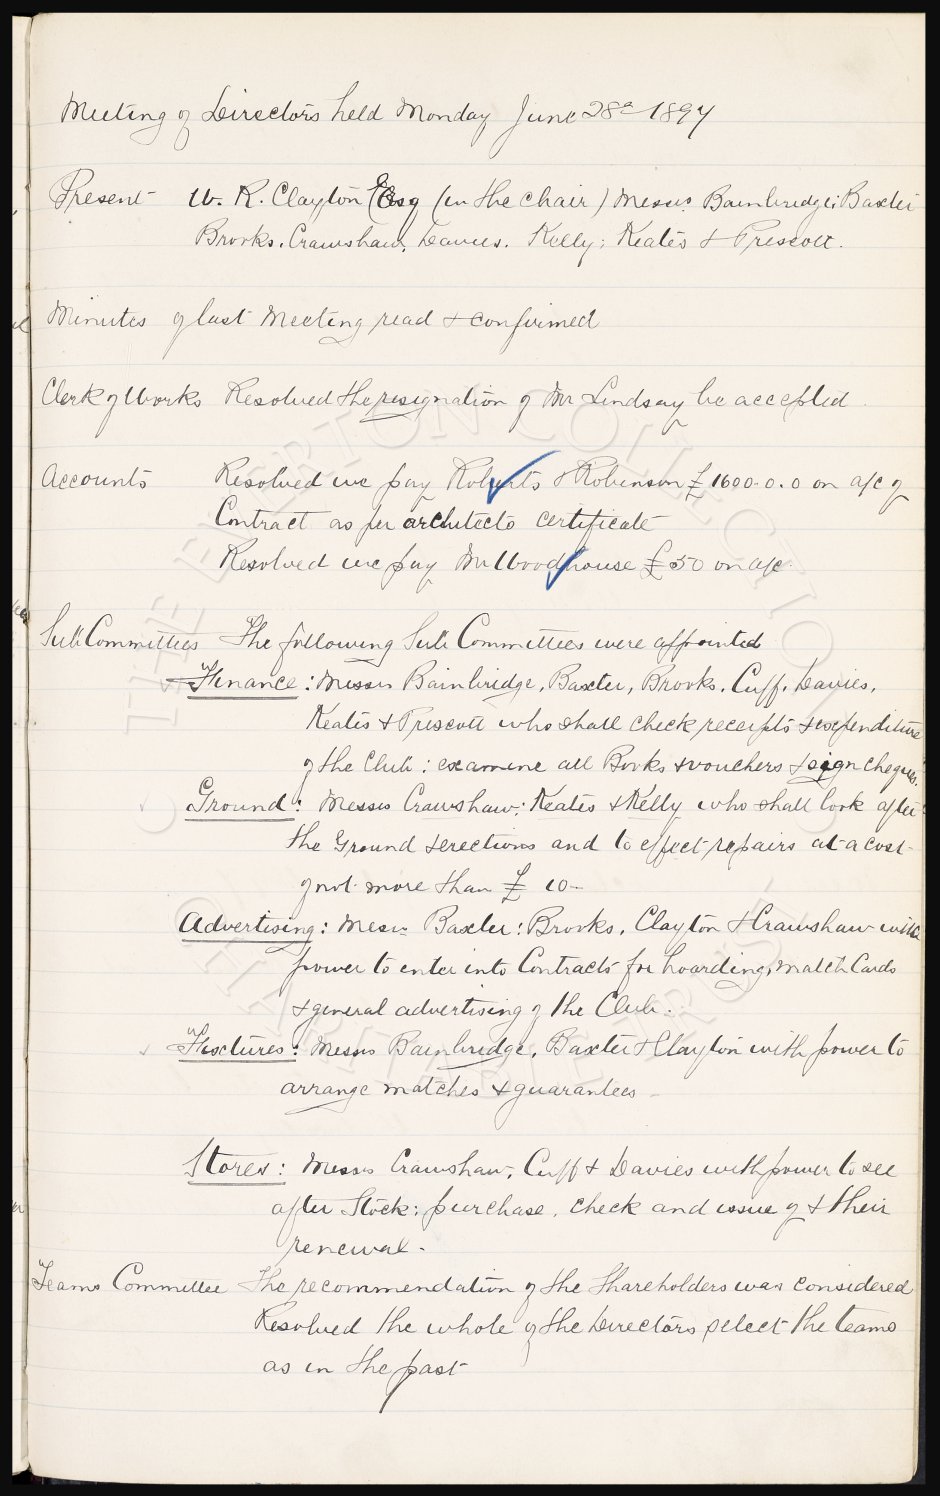 Meeting of Directors held Monday June 28th 1897
Present W. R. Clayton Esq (in the chair) Messrs Bainbridge; Baxter
Brooks, Crawshaw, Davies, Kelly; Keates & Prescott.
Minutes of last Meeting read & confirmed
Clerk of Works Resolved the resignation of Mr Lindsay be accepted.
Accounts Resolved we pay Roberts & Robinson £1600.0.0 on a/c of
Contract as per architects certificate
Resolved we pay Mr Woodhouse £50 on a/c.
Sub Committees The following Sub Committees were appointed
Finance: Messrs Bainbridge, Baxter, Brooks, Cuff, Davies,
Keates & Prescott who shall check receipts & expenditure
of the Club: examine all Books & vouchers & sign cheques.
Ground: Messrs Crawshaw; Keates & Kelly who shall look after
the Ground & erections and to effect repairs at a cost
of not more than £10-
Advertising: Messrs Baxter: Brooks, Clayton & Crawshaw with
power to enter into Contracts for hoarding, match Cards
& general advertising of the Club.
Fixtures: Messrs Bainbridge, Baxter & Clayton with power to
arrange matches & guarantees -
Stores: Messrs Crawshaw, Cuff & Davies with power to see
after Stock: purchase, check and issue of & their
renewal -
Teams Committee The recommendation of the Shareholders was considered
Resolved the whole of the Directors select the teams
as in the past
THE EVERTON COLLECTION
CHARITABLE TRUST